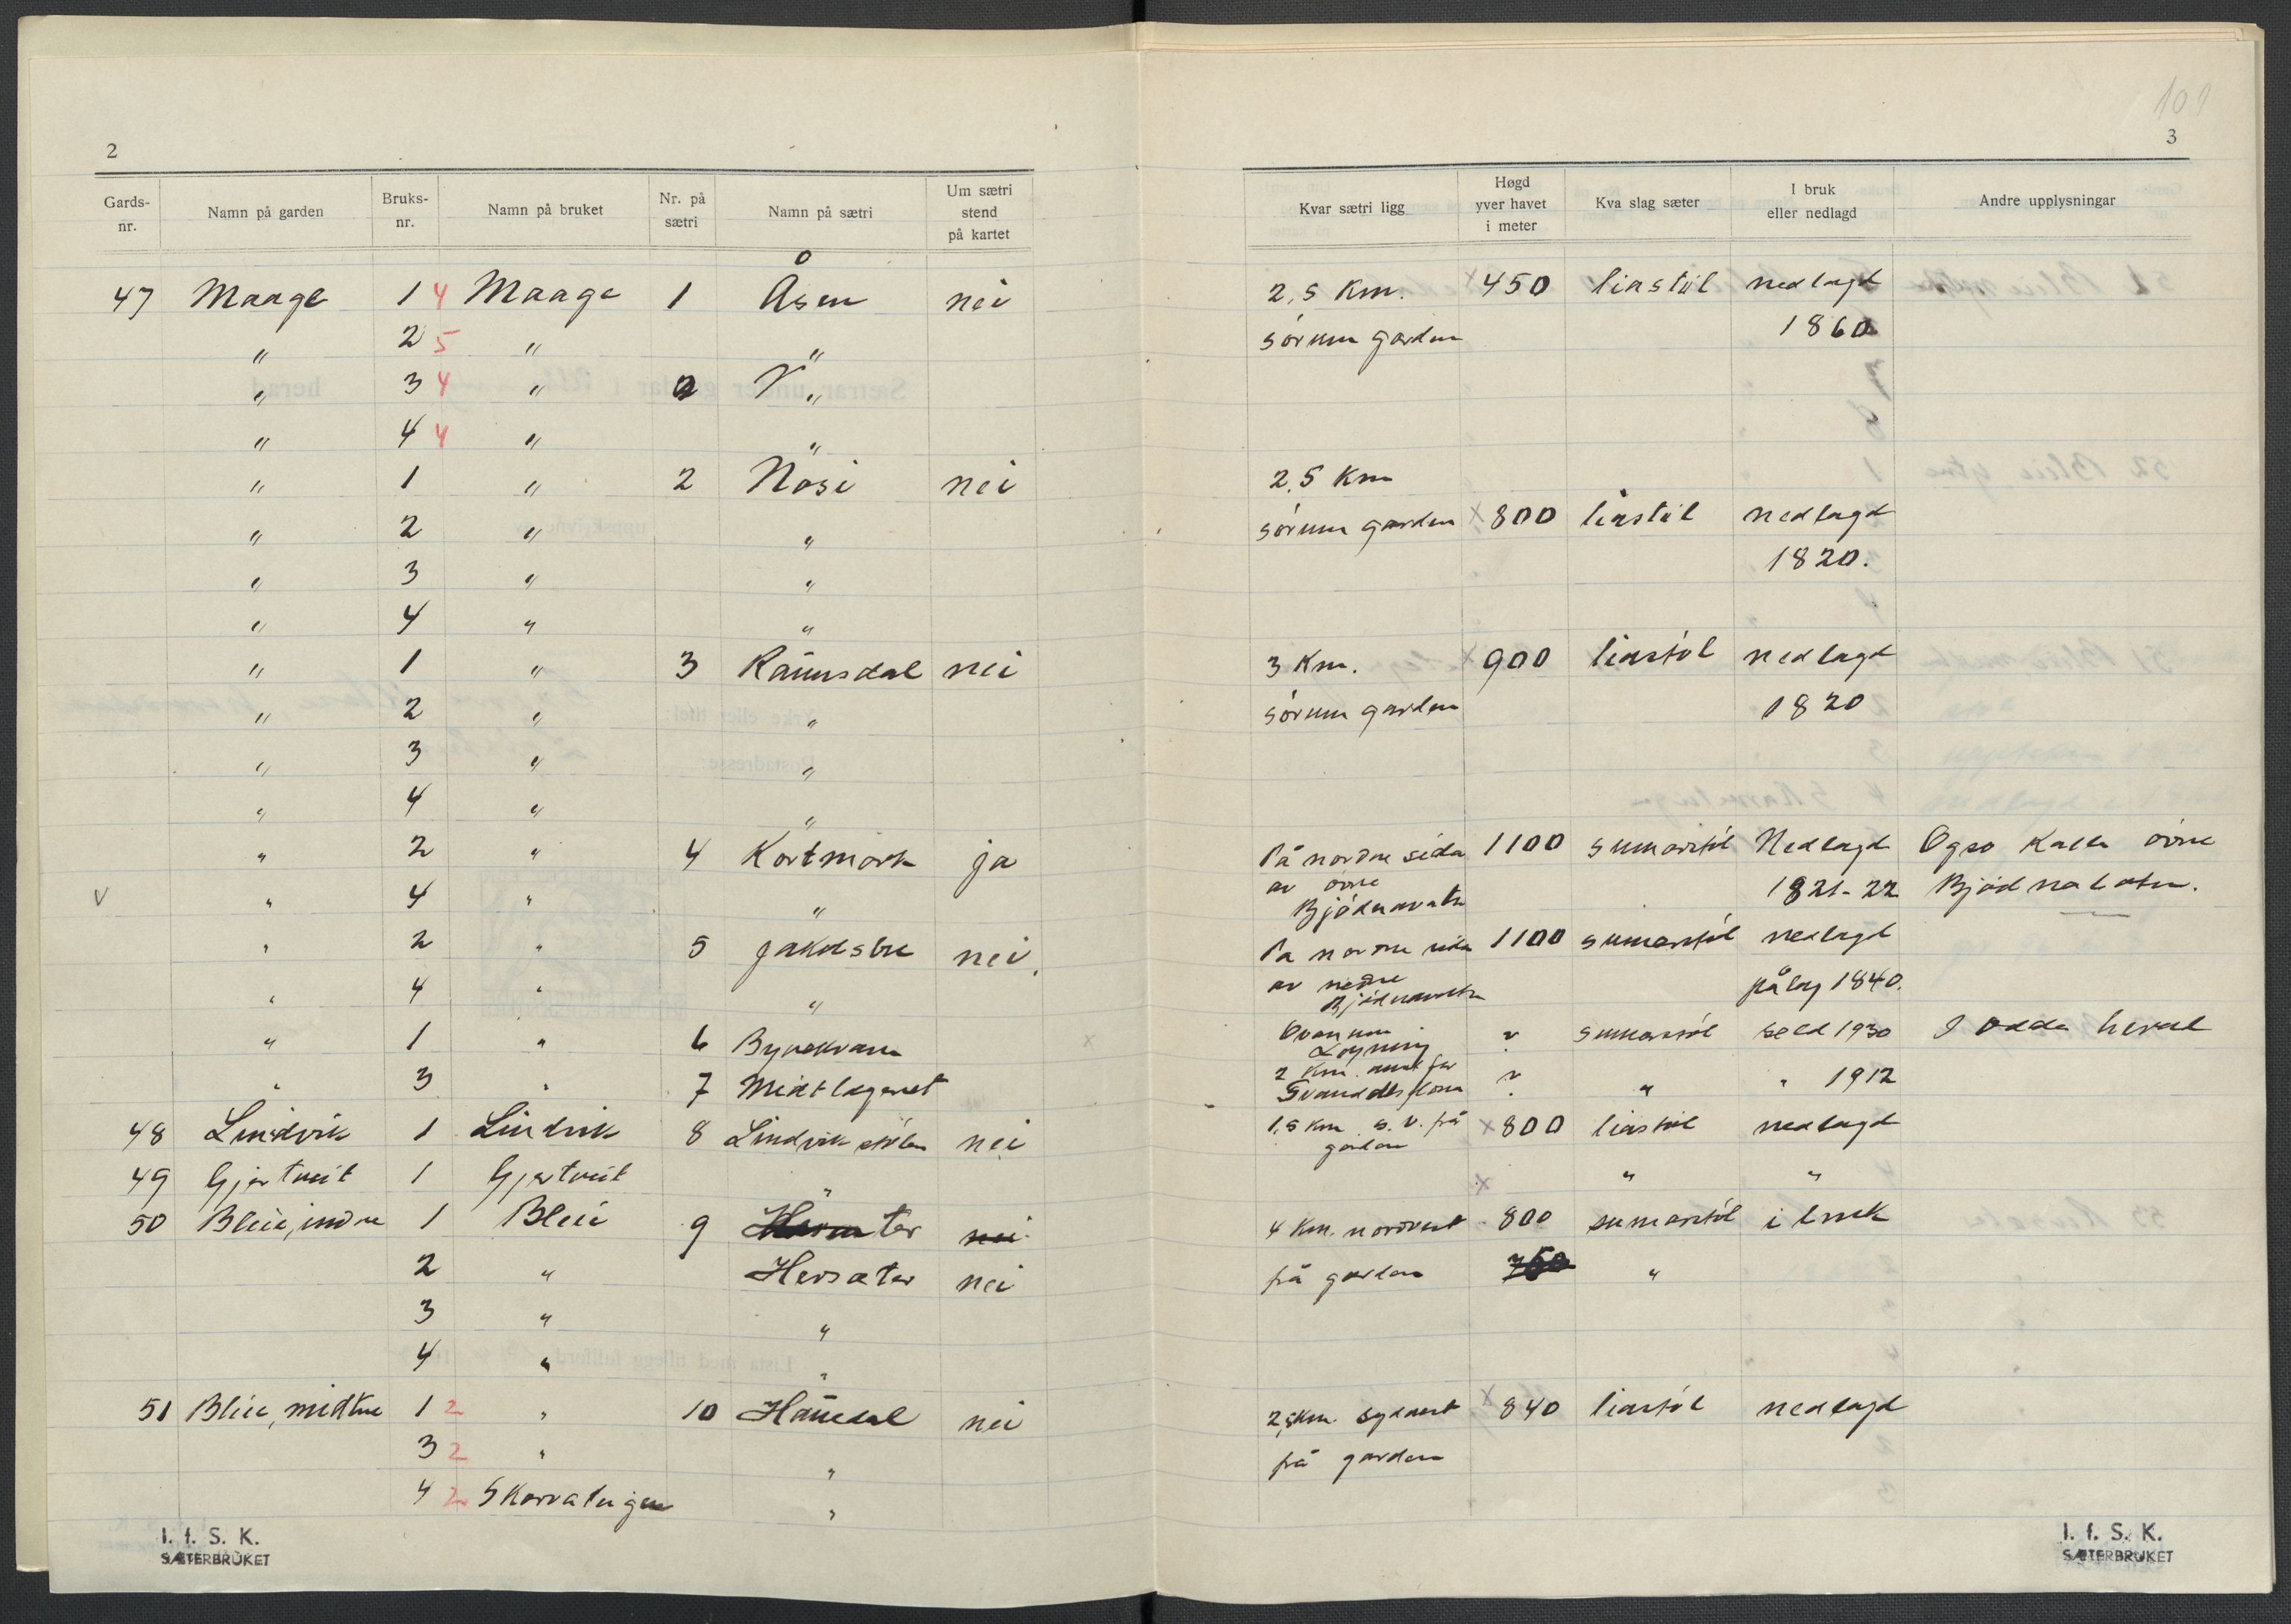 2
Gards-nr. Namn på garden Bruks-nr. Namn på bruket Nr. på sætri Namn på sætri Um sætri stend på kartet
47 Maage 1 4 Maage 1 Åsen nei
" 2 5 " "
" 3 4 " "
" 4 4 " "
" 1 " 2 Nosi nei
" 2 " "
" 3 " "
" 4 " "
" 1 " 3 Raunsdal nei
" 2 " "
" 3 " "
" 4 " "
" 2 " 4 Kortmork ja
V " 4 " "
" 2 " 5 nei
" 4 " "
" 1 " 6
" 3 " 7 Midtlægeret
48 Lindvik 1 Lindvik 8 Lindvikstölen nei
49 Gjertveit 1 Gjertveit "
50 Bleie, indre 1 Bleie 9
2 " Hersæter nei
3 " "
4 " "
51 Bleie, midtre 1 2 " 10 Haudal nei
3 2 " "
4 2 "
I. f. S. K.
SÆTERBRUKET
101
3
Kvar sætri ligg Høgd yver havet i meter Kva slag sæter I bruk eller nedlagd Andre upplysningar
2,5 Km. x 450 liastöl nedlagd
sörum garden 1860
2,5 Km
sörum garden x 800 liastöl nedlagd
1820.
3 Km. x 900 liastöl nedlagd
sörum garden 1820
På nordre sida 1100 sumarstöl Nedlagd Ogso kalla övre
av övre 1821-22
Bjödnavatn
På nordre sida 1100 sumarstöl nedlagd
av nedre på lag 1840.
Bjödnavatn
Ovanum ? sumarstöl seld 1930 I Odda herad
Löyning
2 Km. ? " " 1912
1,5 Km s.v. frå x 800 liastöl nedlagd
garden
x " "
4 Km. nordvest 800 sumarstöl i bruk
frå garden 750 "
2,5 Km. sydvest x 840 liastöl nedlagd
frå garden
I. f. S. K.
SÆTERBRUKET